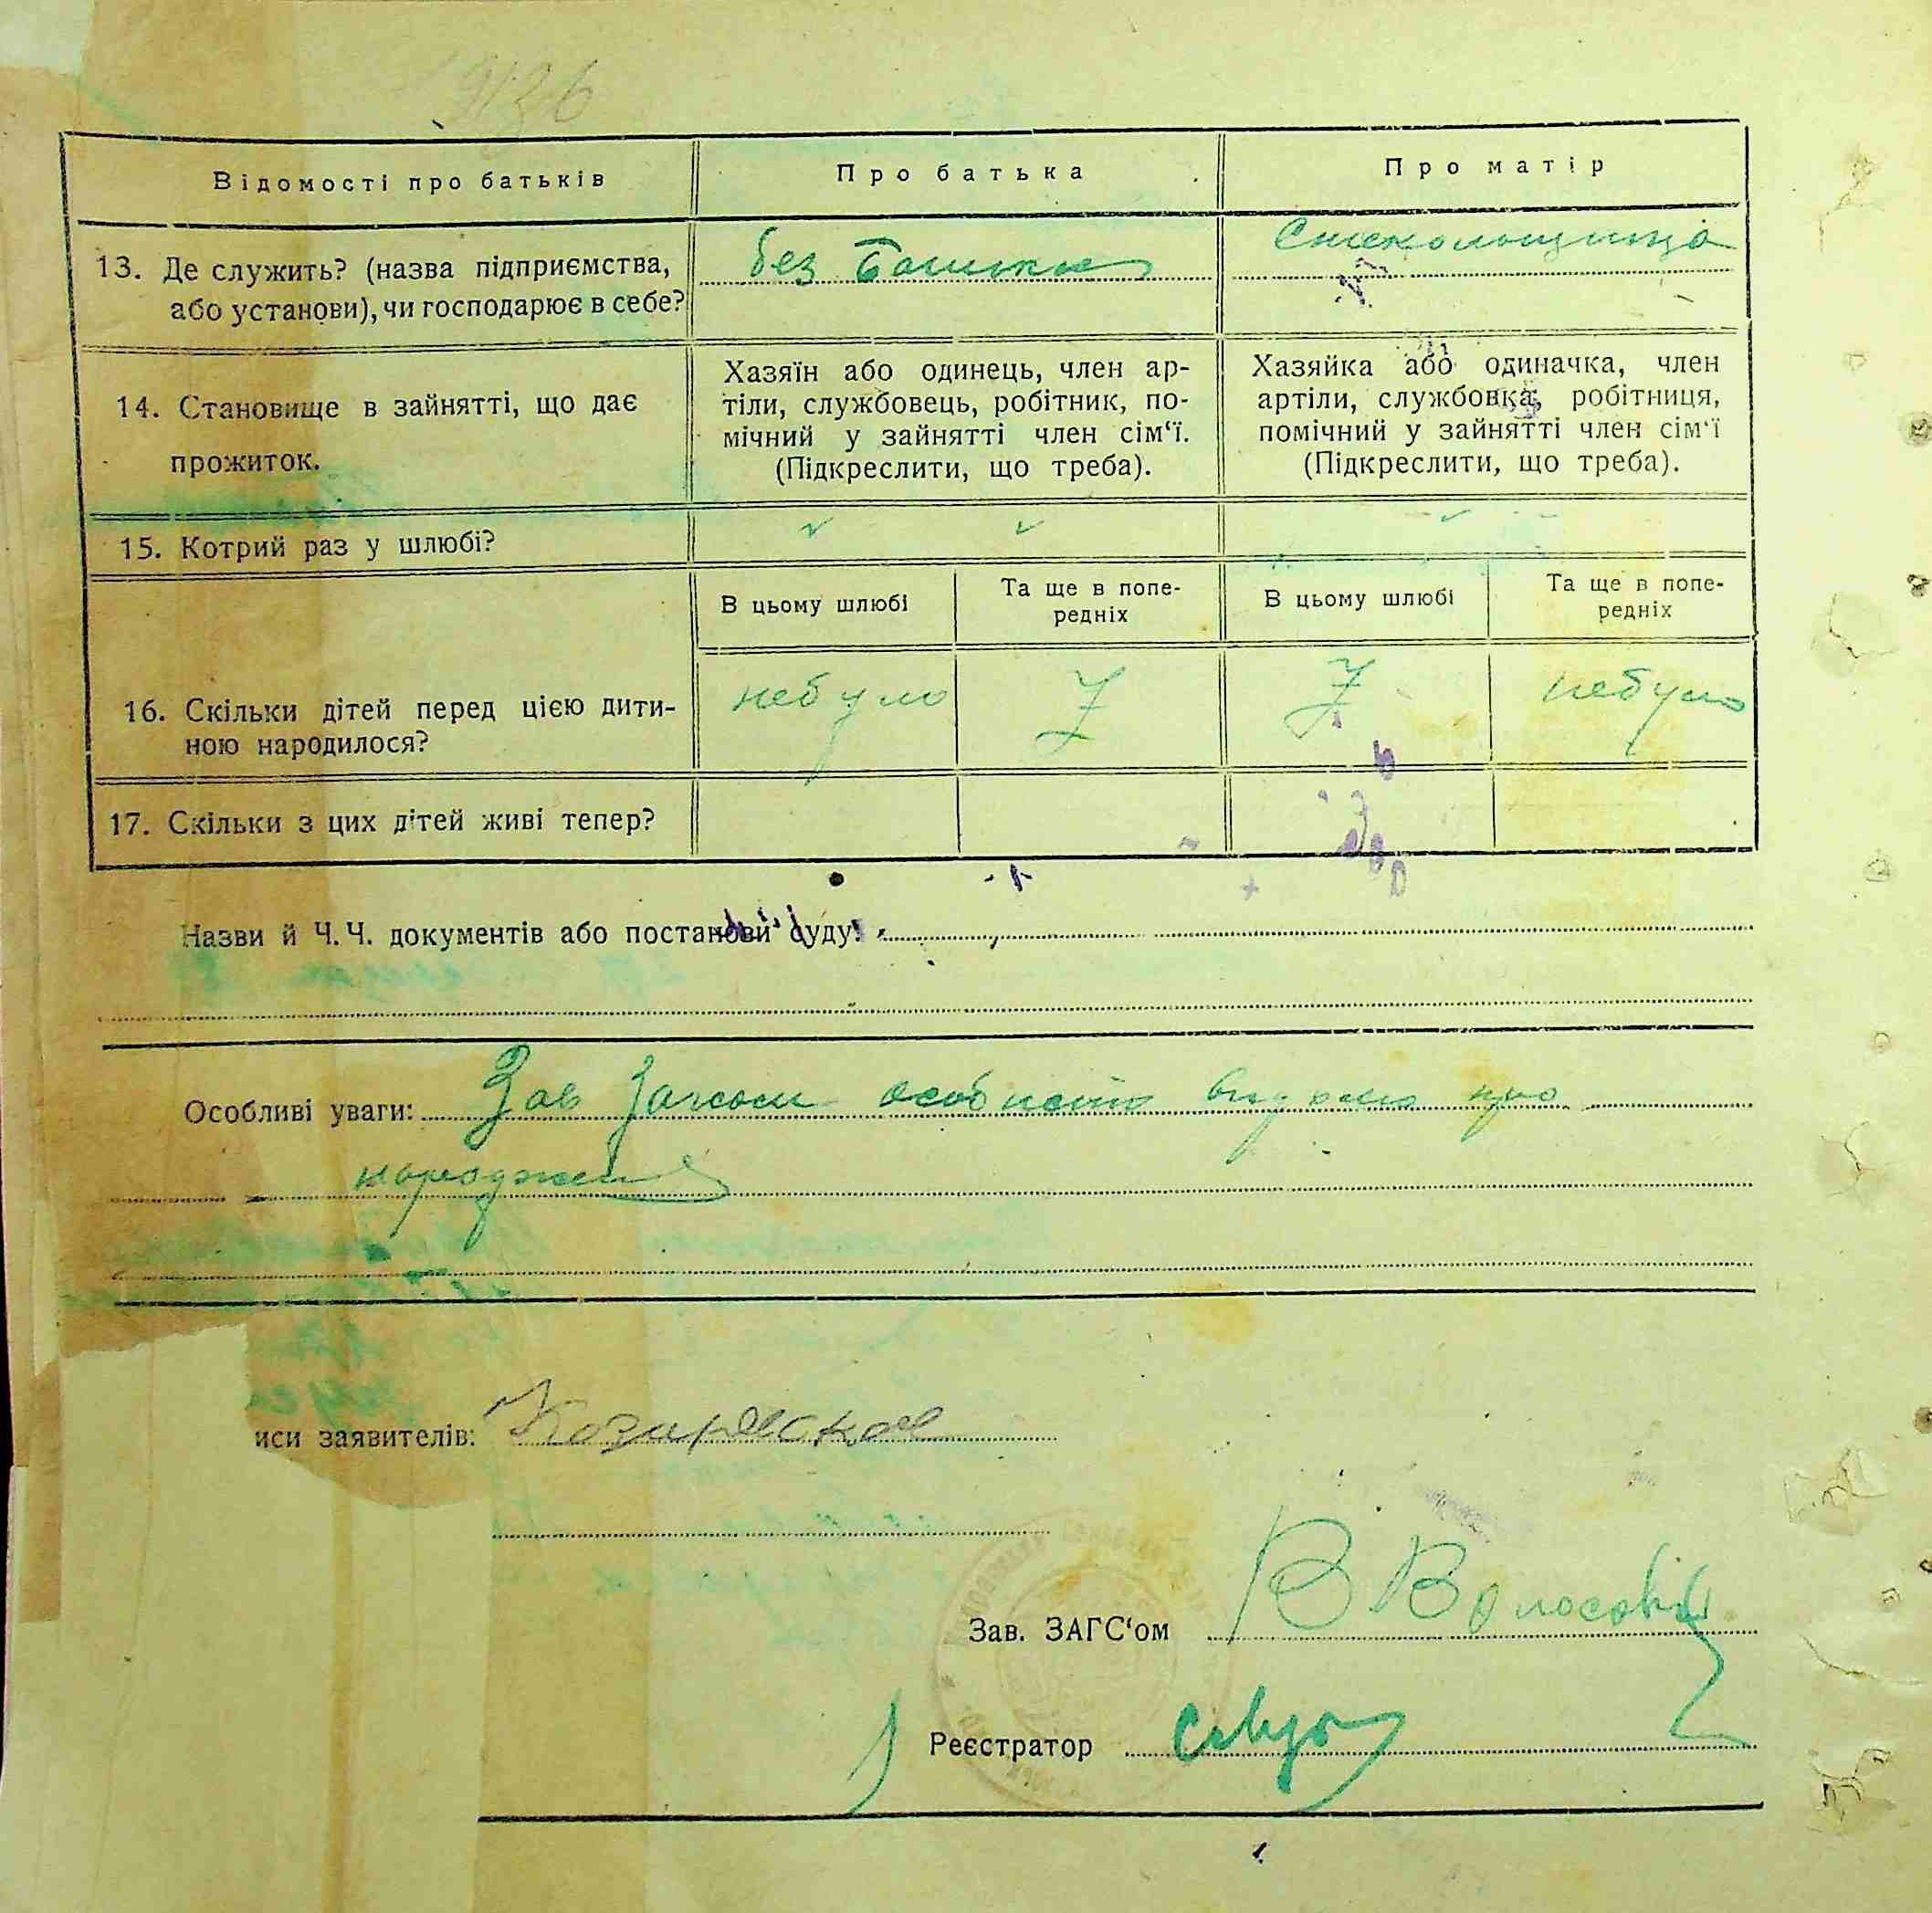 Відомості про батьків
Про батька
Про матір
13. Де служить? (назва підприємства,
або установи), чи господарює в себе?
без батька
14. Становище в зайнятті, що дає
прожиток.
Хазяїн або одинець, член ар-
тіли, службовець, робітник, по-
мічний у зайнятті член сім‘ї.
(Підкреслити, що треба).
Хазяйка або одиначка, член
артіли, службовка, робітниця,
помічний у зайнятті член сім‘ї
(Підкреслити, що треба).
15. Котрий раз у шлюбі?
В цьому шлюбі
Та ще в попе-
редніх
В цьому шлюбі
Та ще в попе-
редніх
16. Скільки дітей перед цією дити-
ною народилося?
небуло
небуло
17. Скільки з цих дітей живі тепер?
Назви й Ч. Ч. документів або постанови суду:
Особливі уваги: Зав Загсом особисто про
иси заявителів:
Зав. ЗАГС‘ом
Реєстратор